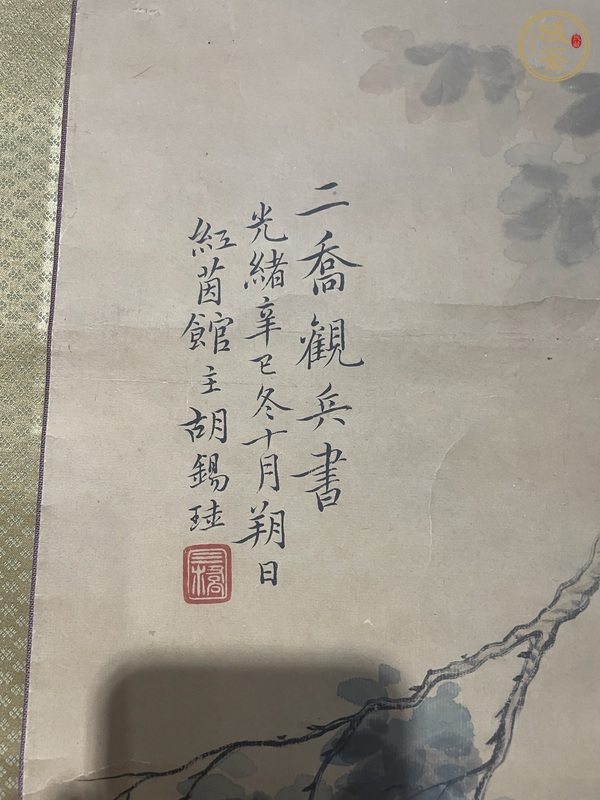 二喬觀兵書
光緒辛巳冬十月朔日
紅茵館主胡錫珪
三橋